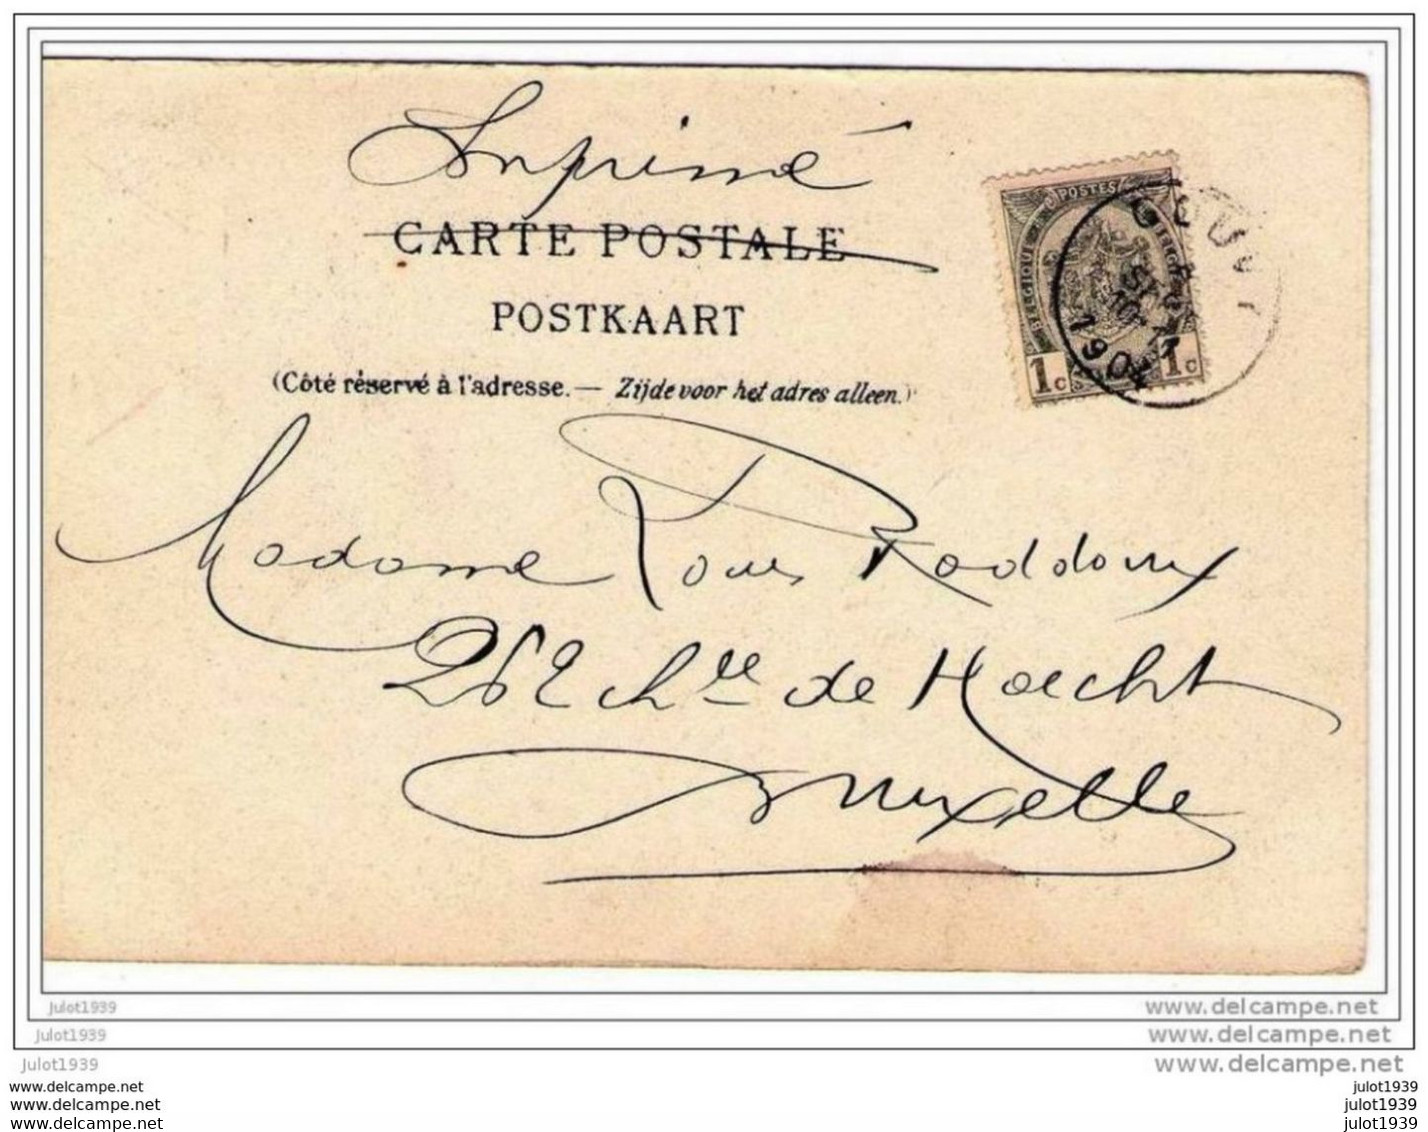 Imprimé
CARTE POSTALE
POSTKAART
(Côté réservé à l'adresse. — Zijde voor het adres alleen.)
POSTES
BELGIQUE
1c 1c
GOUVY
1904
Madame Louis Raddoux
262 Chée de Haecht
Bruxelles
Julot1939
www.delcampe.net
Julot1939
www.delcampe.net
Julot1939
www.delcampe.net
www.delcampe.net
julot1939
www.delcampe.net
julot1939
www.delcampe.net
julot1939